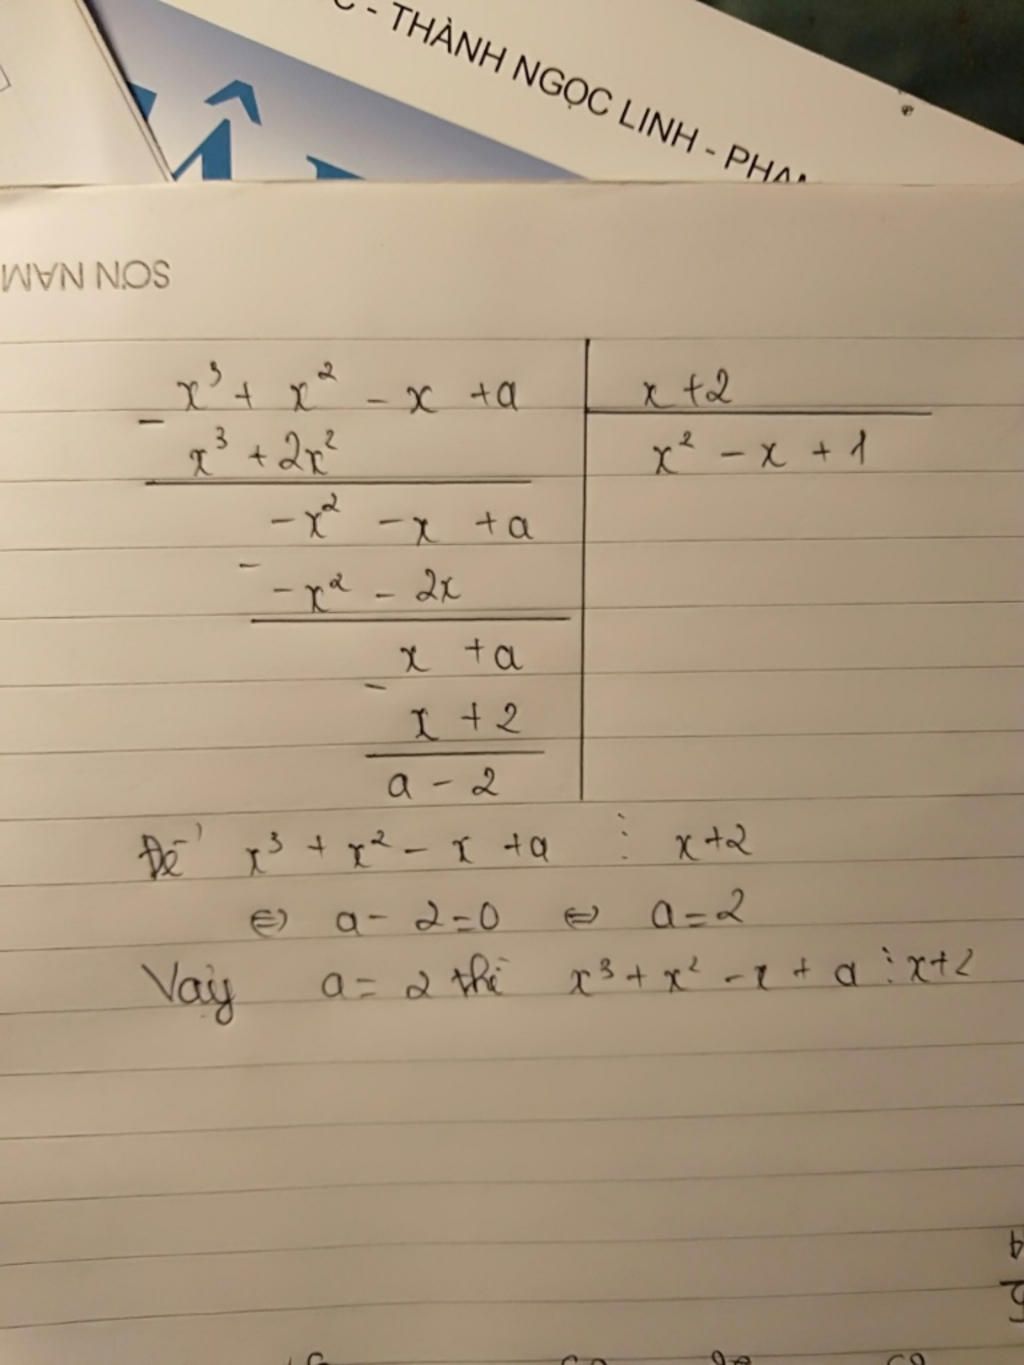 C - THÀNH NGỌC LINH - PHẠM
SƠN NAM
x³ + x² - x + a | x + 2
- x³ + 2x² | x² - x + 1
-x² - x + a
- -x² - 2x
x + a
- x + 2
a - 2
Để x³ + x² - x + a ⋮ x + 2
⇔ a - 2 = 0 ⇔ a = 2
Vậy a = 2 thì x³ + x² - x + a ⋮ x + 2